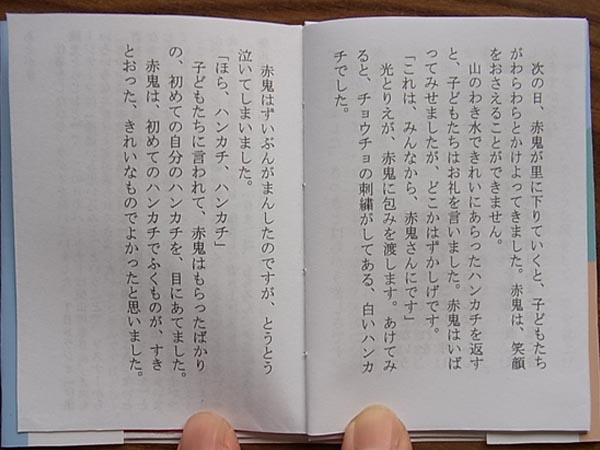 次の日、赤鬼が里に下りていくと、子どもたち
がわらわらとかけよってきました。赤鬼は、笑顔
をおさえることができません。
山のわき水できれいにあらったハンカチを返す
と、子どもたちはお礼を言いました。赤鬼はいば
ってみせましたが、どこかはずかしげです。
「これは、みんなから、赤鬼さんにです」
光とりえが、赤鬼に包みを渡します。あけてみ
ると、チョウチョの刺繍がしてある、白いハンカ
チでした。
赤鬼はずいぶんがまんしたのですが、とうとう
泣いてしまいました。
「ほら、ハンカチ、ハンカチ」
子どもたちに言われて、赤鬼はもらったばかり
の、初めての自分のハンカチを、目にあてました。
赤鬼は、初めてのハンカチでふくものが、すき
とおった、きれいなものでよかったと思いました。